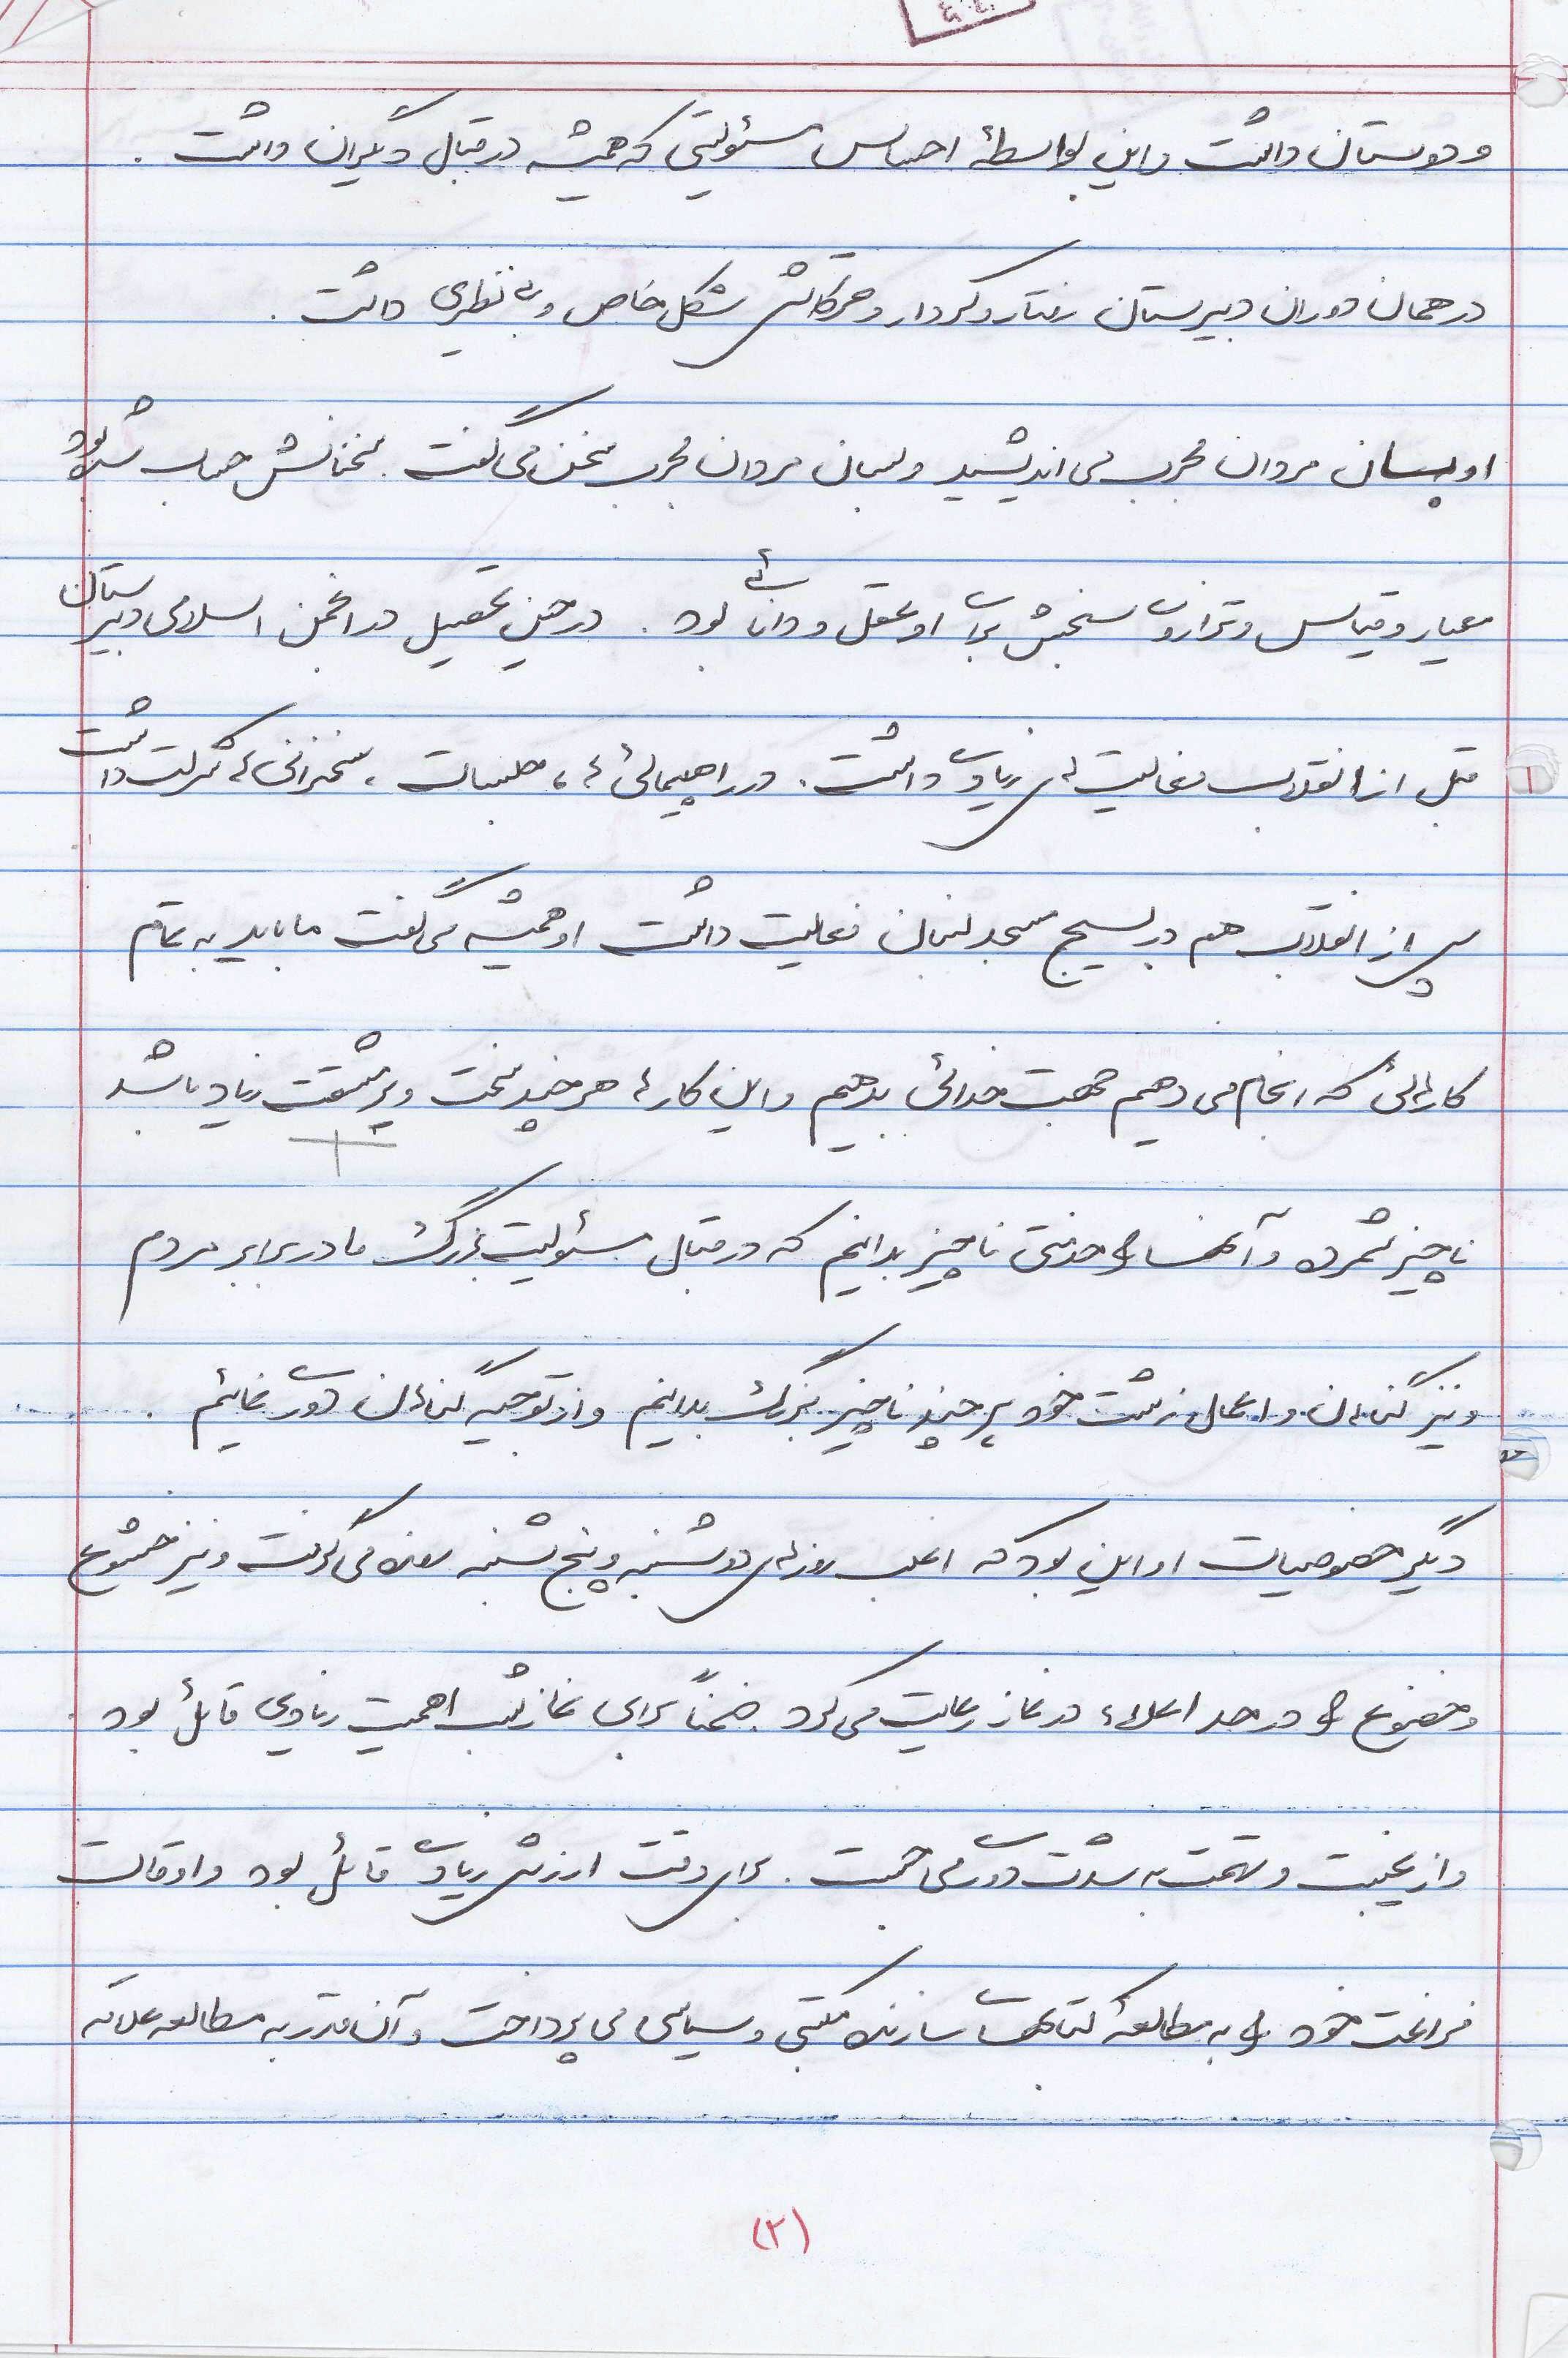 و دوستان داشت و این بواسطهٔ احساس مسئولیتی که همیشه در قبال دیگران داشت .
در همان دوران دبیرستان رفتار و کردار و حرکاتش شکل خاص و بی نظیری داشت .
او بسان مردان مجرب می اندیشید و بسان مردان مجرب سخن می گفت . سخنانش حساب شده بود
معیار و قیاس و ترازوی سنجش برای او عقل و دانائی بود . در حین تحصیل در انجمن اسلامی دبیرستان
قبل از انقلاب فعالیت های زیادی داشت . در راهپیمائی ها ، جلسات ، سخنرانی ها شرکت داشت
پس از انقلاب هم در بسیج مسجد لنبان فعالیت داشت او همیشه می گفت ما باید به تمام
کارهائی که انجام می دهیم جهت خدائی بدهیم و این کارها هر چند سخت و پر مشقت زیاد باشد
ناچیز شمرده و آنها را خدمتی ناچیز بدانیم که در قبال مسئولیت بزرگ ما در برابر مردم
و نیز گناهان و اعمال زشت خود هر چند ناچیز بزرگ بدانیم و از توجیه گناهان دوری نمائیم .
دیگر خصوصیات او این بود که اغلب روزهای دوشنبه و پنج شنبه روزه می گرفت و نیز خشوع
و خضوع را در حد اعلاء در نماز رعایت می کرد . ضمناً برای نماز شب اهمیت زیادی قائل بود .
و از غیبت و تهمت به شدت دوری می جست . برای وقت ارزش زیادی قائل بود و اوقات
فراغت خود را به مطالعهٔ کتابهای سازنده مکتبی و سیاسی می پرداخت و آن قدر به مطالعه علاقه
(۲)